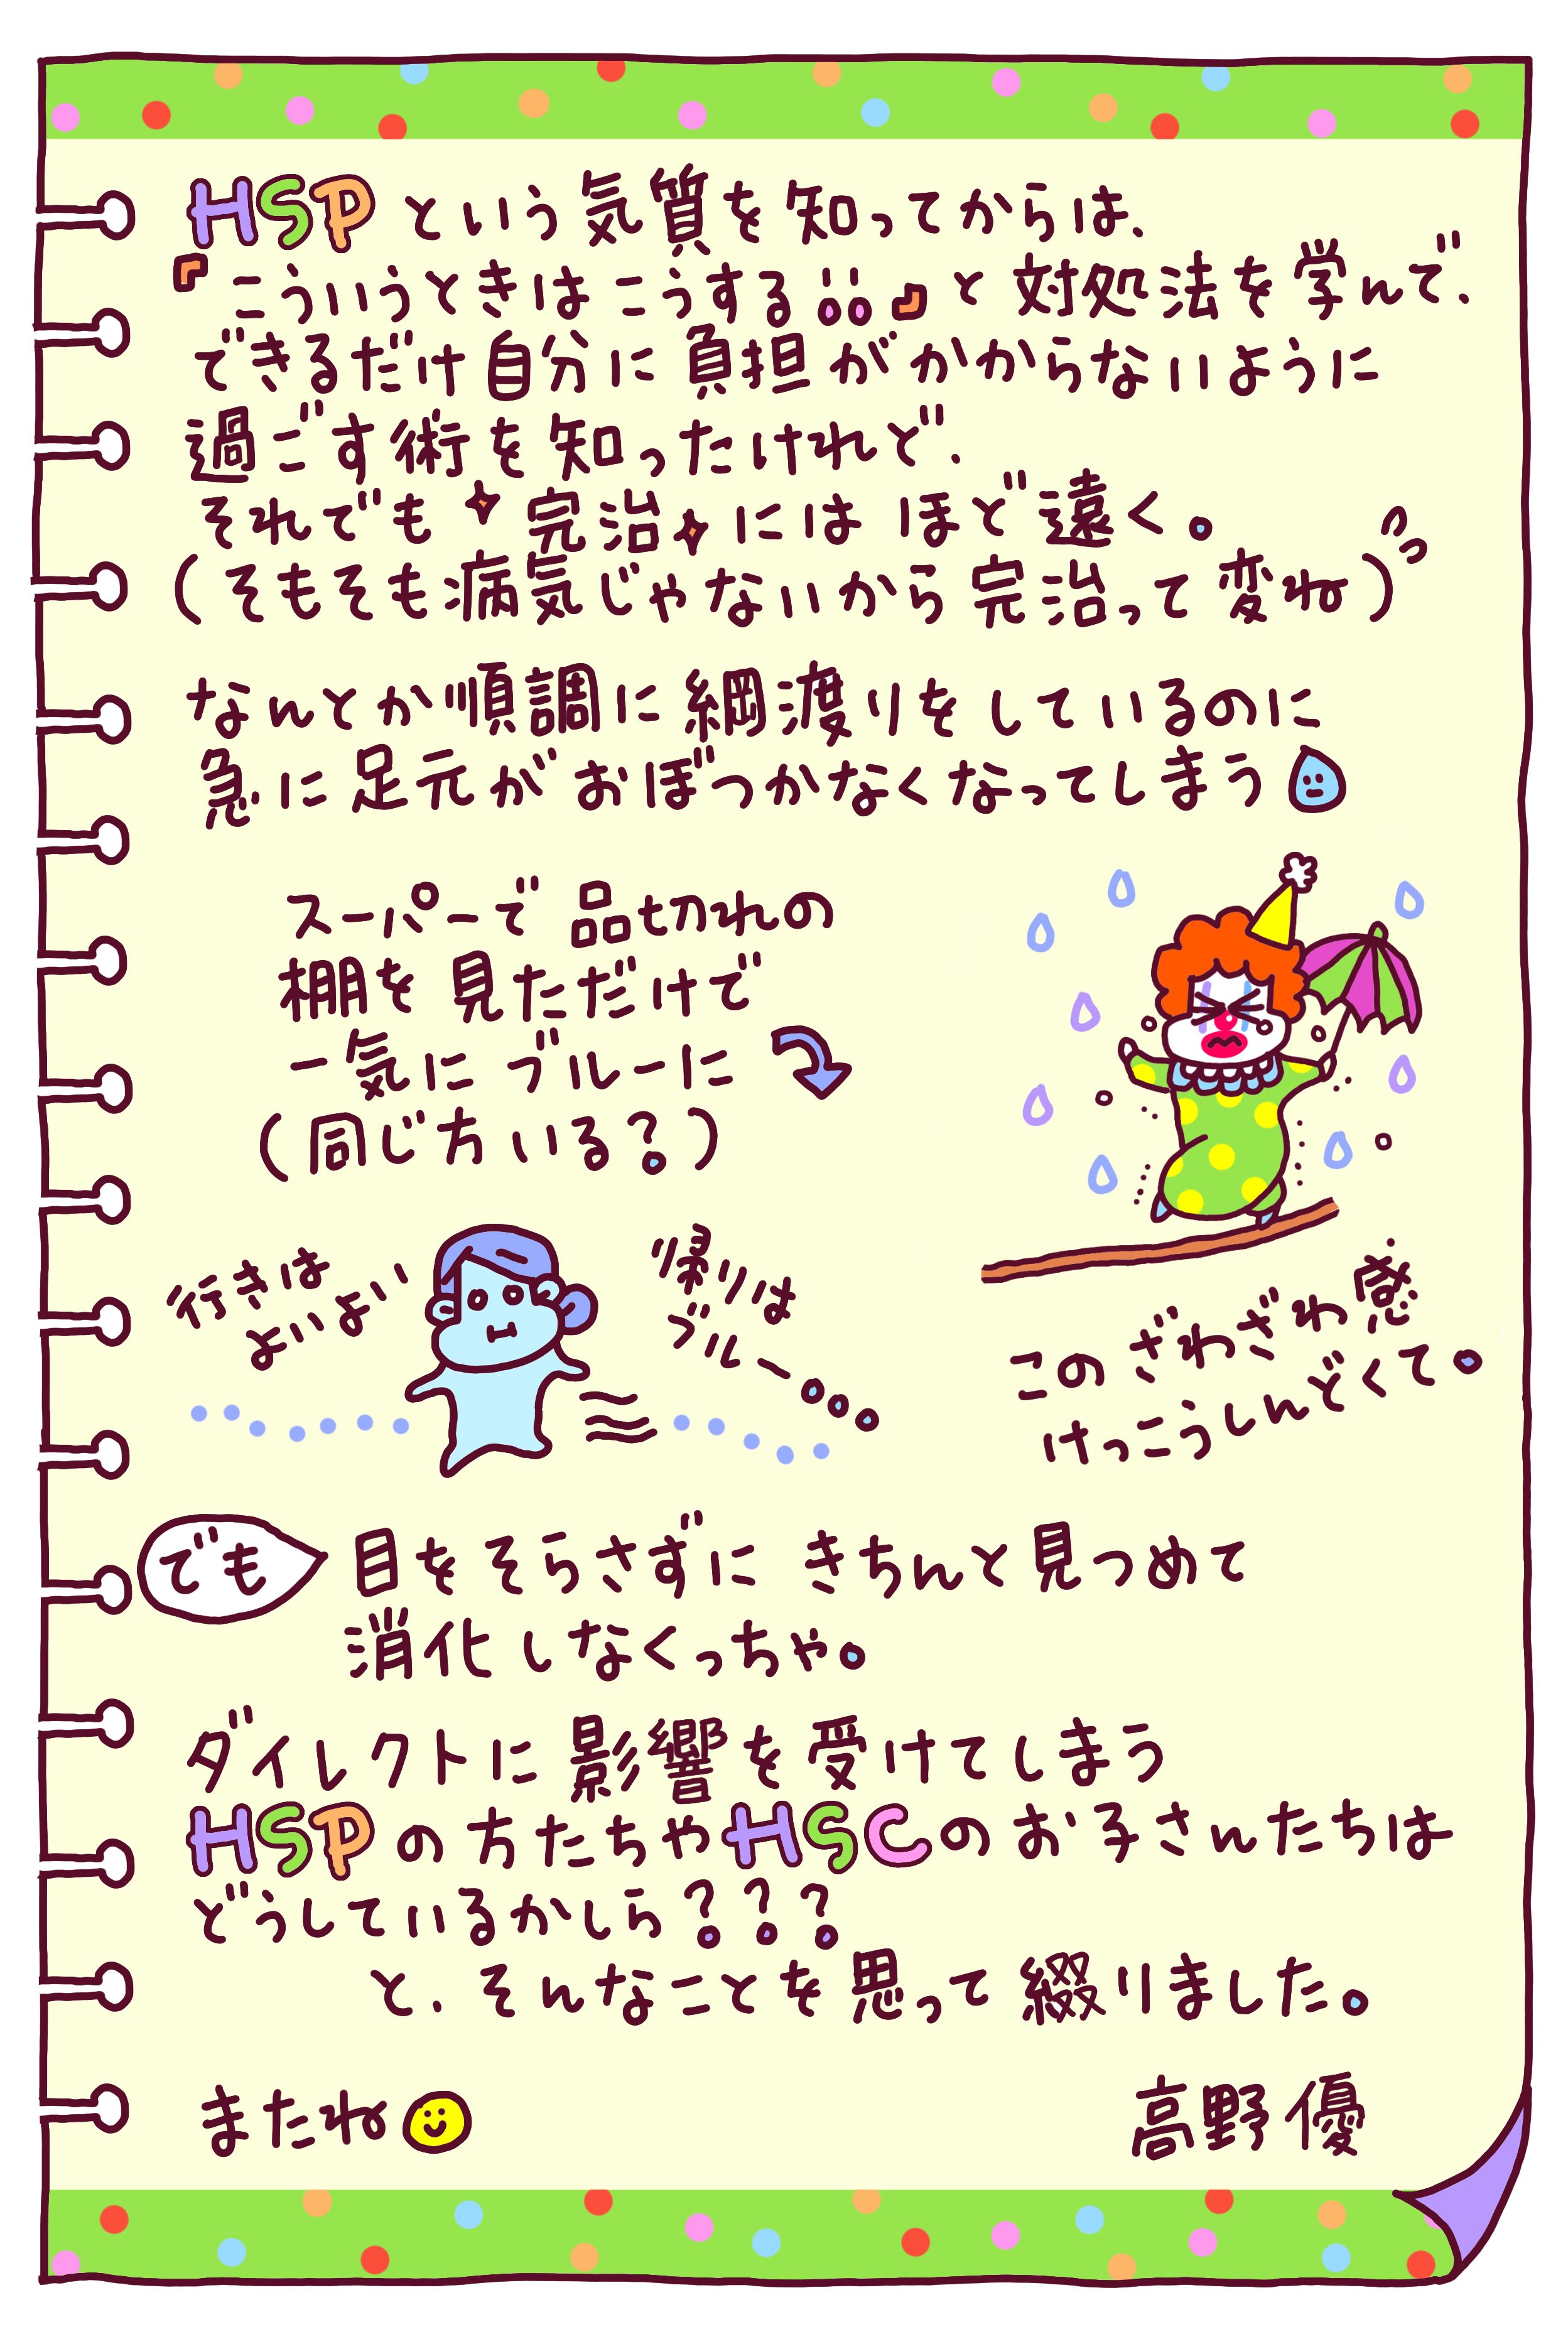 HSPという気質を知ってからは、
『こういうときはこうする!!』と対処法を学んで、
できるだけ自分に負担がかからないように
過ごす術を知ったけれど、
それでも完治にはほど遠く。
(そもそも病気じゃないから完治って変ね)
なんとか順調に綱渡りをしているのに
急に足元がおぼつかなくなってしまう
スーパーで品切れの
棚を見ただけで
一気にブルーに
(同じ方いる?)
行きは
よいよい
帰りは
ブルー...
このざわざわ感
けっこうしんどくて。
でも
目をそらさずにきちんと見つめて
消化しなくっちゃ。
ダイレクトに影響を受けてしまう
HSPの方たちやHSCのお子さんたちは
どうしているかしら???
と、そんなことを思って綴りました。
またね
高野優